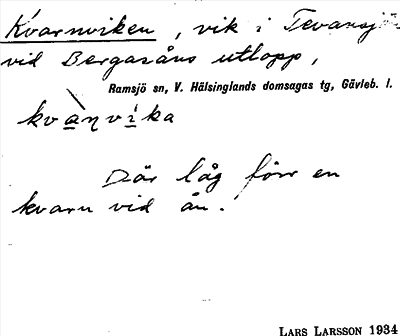 Kvarnviken, vik i Tevansjö
vid Bergaråns utlopp,
Ramsjö sn, V. Hälsinglands domsagas tg, Gävleb. l.
kvàn̥vìka
Där låg förr en
kvarn vid ån.
LARS LARSSON 1934